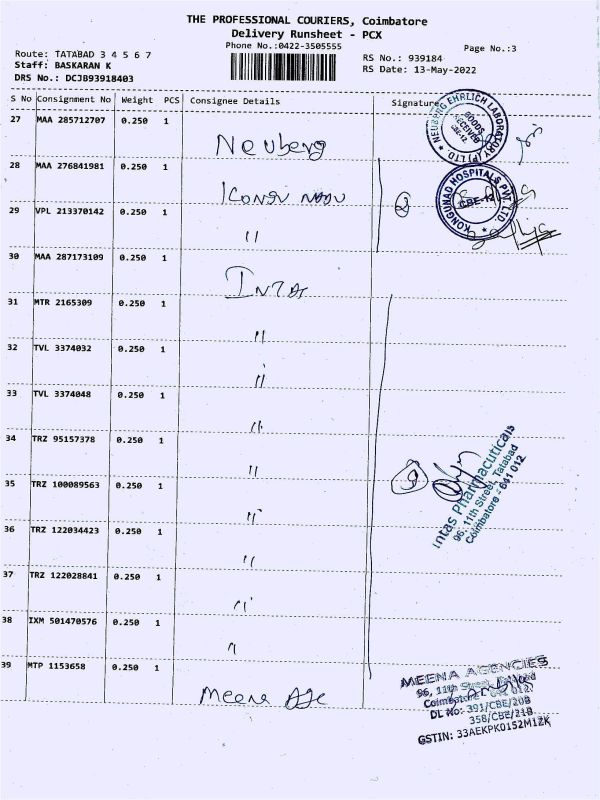 THE PROFESSIONAL COURIERS, Coimbatore
Delivery Runsheet - PCX
Phone No.:0422-3505555
Page No.:3
Route: TATABAD 3 4 5 6 7
Staff: BASKARAN K
DRS No.: DCJB93918403
RS No.: 939184
RS Date: 13-May-2022
S No Consignment No Weight PCS Consignee Details Signature
27 MAA 285712707 0.250 1
Neuberg
NEUBERG EHRLICH LABORATORY (P) LTD.
GOODS RECEIVED CBE-12
28 MAA 276841981 0.250 1
KONGU NADU
KONGUNAD HOSPITALS PVT. LTD.
CBE-12
29 VPL 213370142 0.250 1
"
30 MAA 287173109 0.250 1
INTAS
31 MTR 2165309 0.250 1
"
32 TVL 3374032 0.250 1
"
33 TVL 3374048 0.250 1
"
34 TRZ 95157378 0.250 1
"
35 TRZ 100089563 0.250 1
"
Intas Pharmacuticals
96, 11th Street, Tatabad
Coimbatore - 641 012
36 TRZ 122034423 0.250 1
"
37 TRZ 122028841 0.250 1
"
38 IXM 501470576 0.250 1
"
39 MTP 1153658 0.250 1
Meena Age
MEENA AGENCIES
96, 11th Street,
Coimbatore 012.
DL No: 391/CBE/20B
358/CBE/21B
GSTIN: 33AEKPK0152M1ZK